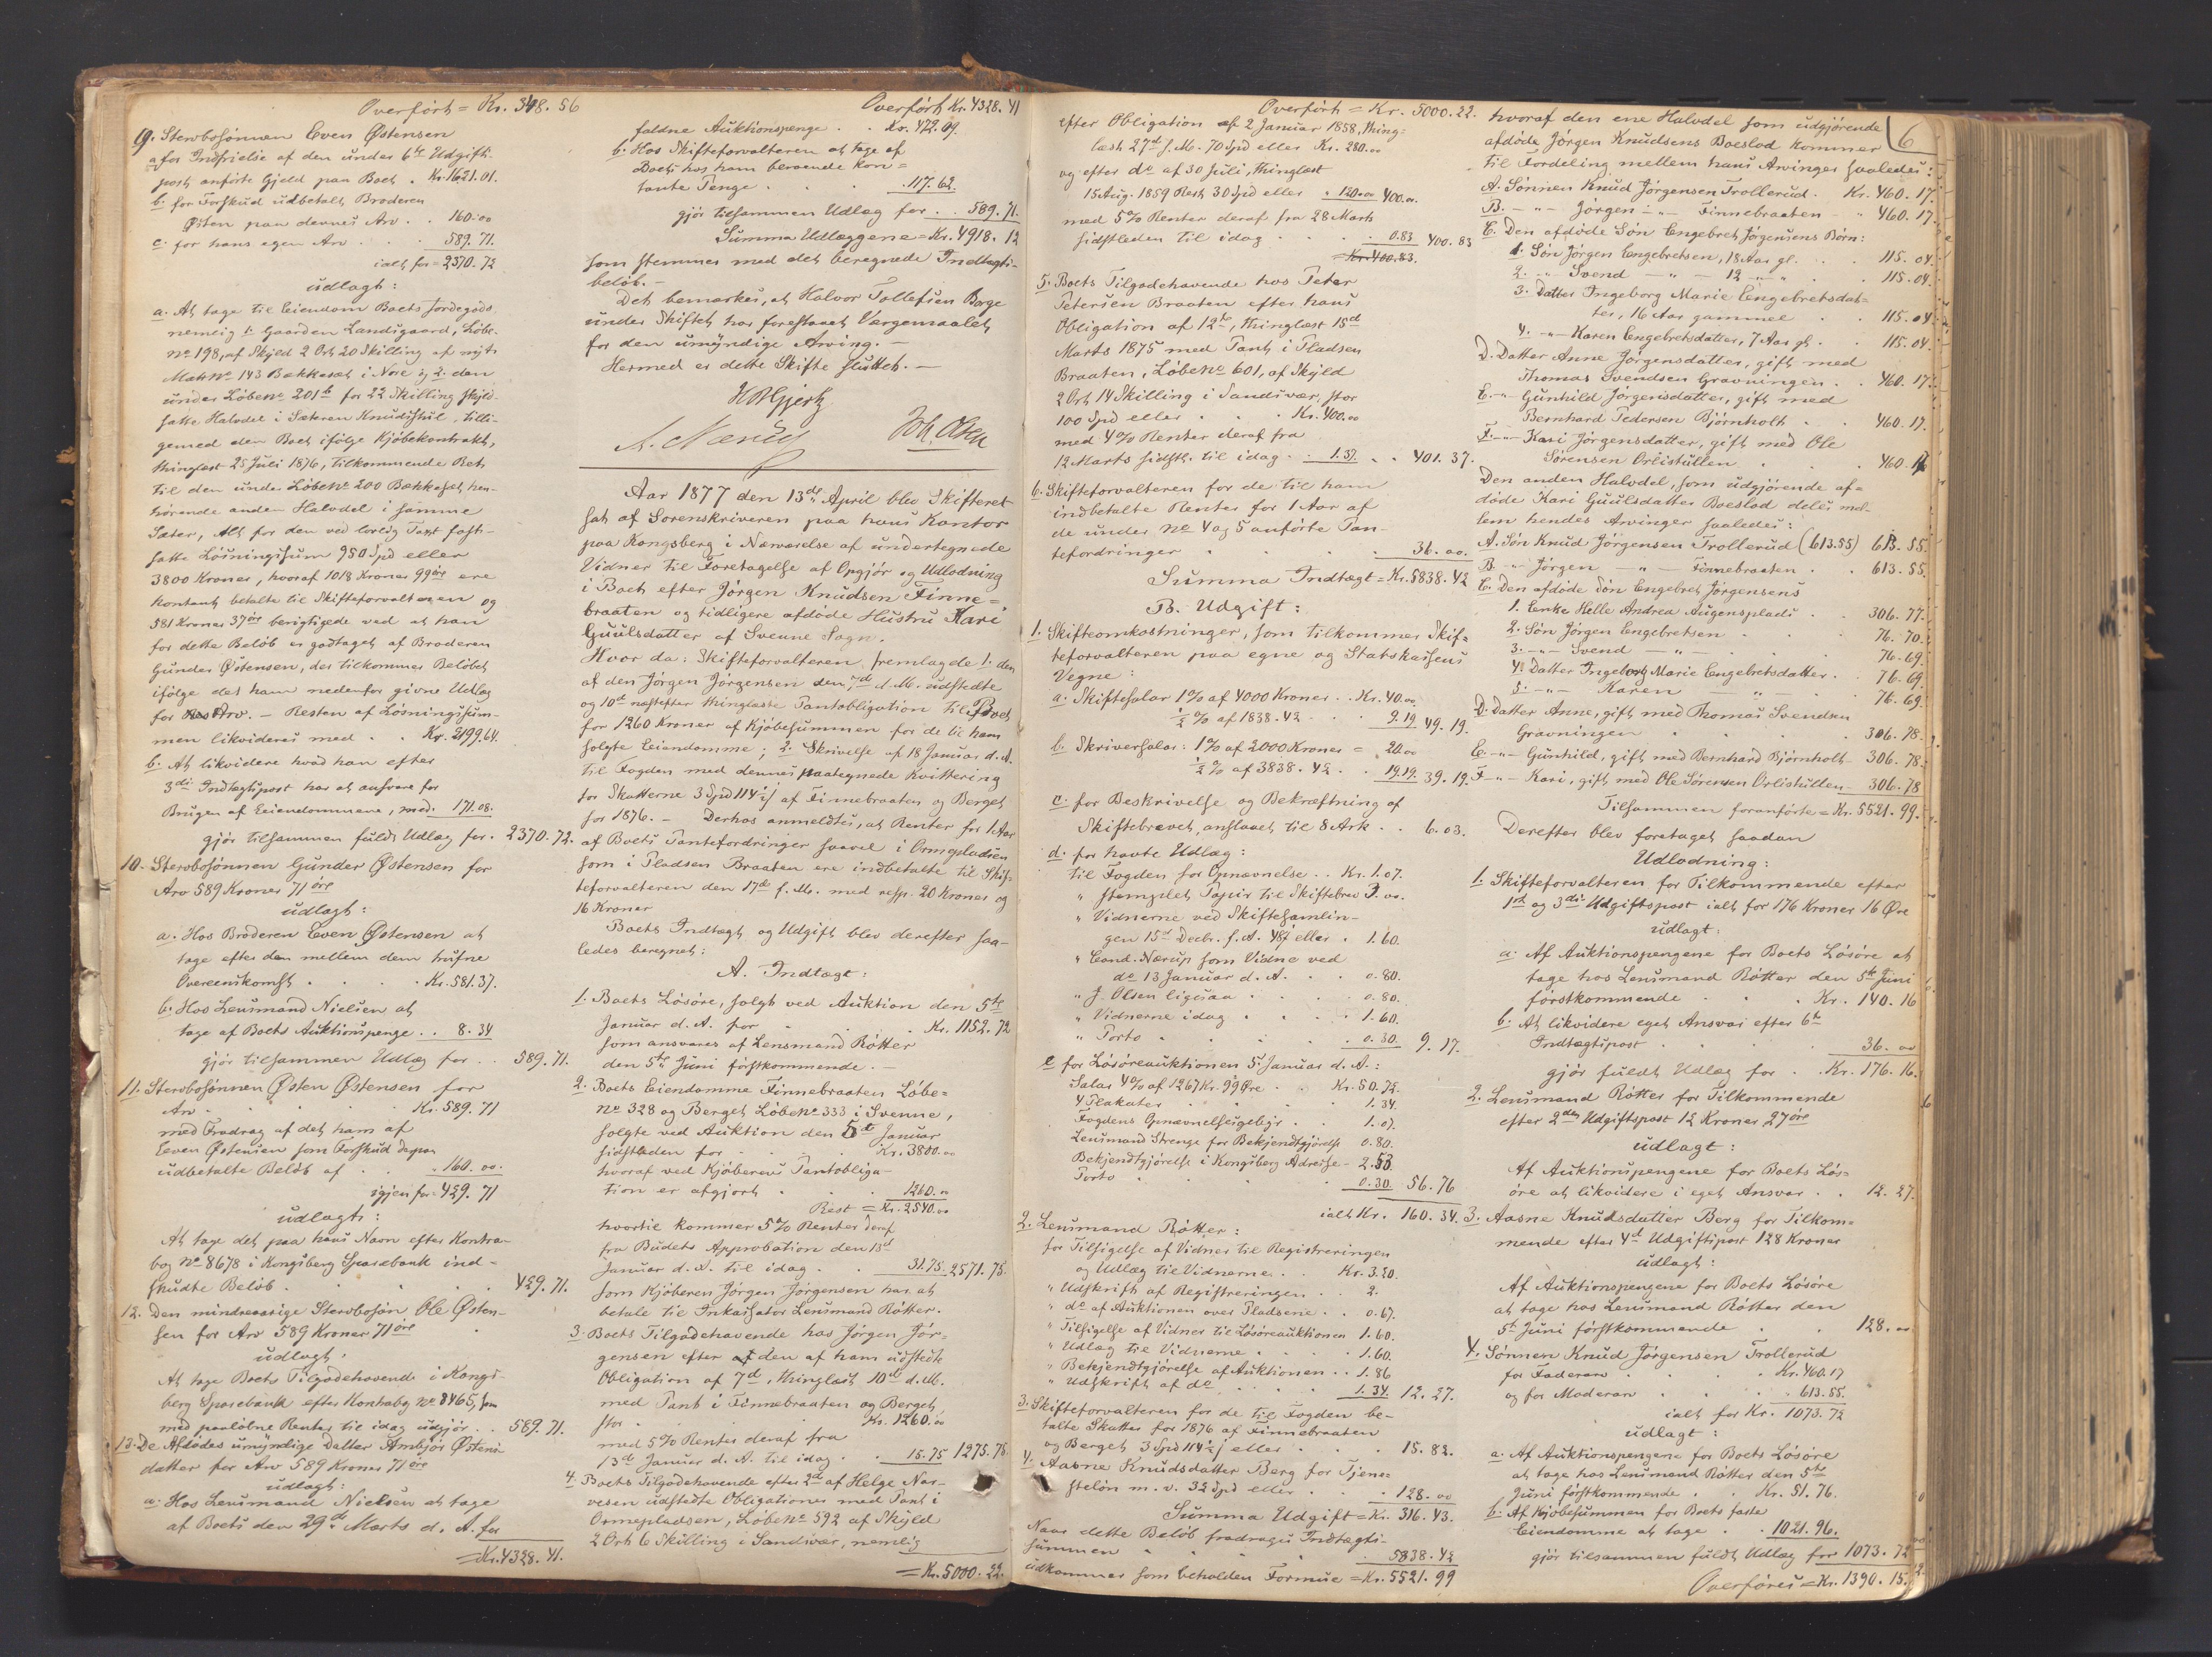 Overført = Kr. 348.56
9. Stervbosønnen Even Østensen
a. for Indfrielse af den under 6te Udgifts-
post anførte Gjeld paa Boet . Kr. 1621.01.
b. for Forskud udbetalt Broderen
Østen paa dennes Arv . . 160.00
c. for hans egen Arv . . . 589.71.
ialt for = 2370.72
udlagt:
a. At tage til Eiendom Boets Jordegods
nemlig 1. Gaarden Landsgaard, Løbe-
No 198, af Skyld 2 Ort 20 Skilling af nyt
Matr No 143 Bakkesæt i Nore og 2. den
under Løbeno 201b for 22 Skilling skyld-
satte Halvdel i Sæteren Knudsstul, tilli-
gemed den Boet ifølge Kjøbekontrakt,
thinglæst 25 Juli 1876, tilkommende Ret
til den under Løbeno 200 Bakkesæt hen-
hørende anden Halvdel i samme
Sæter, Alt for den ved lovlig Taxt fast-
satte Løsningssum 950 Spd eller
3800 Kroner, hvoraf 1018 Kroner 99 øre ere
kontant betalte til Skifteforvalteren og
581 Kroner 37 øre berigtigede ved at han
for dette Beløb er godtaget af Broderen
Gunder Østensen, der tilkommer Beløbet
ifølge det ham nedenfor givne Udlæg
for Arv. – Resten af Løsningssum-
men likvideres med . . Kr. 2199.64.
b. At likvidere hvad han efter
3die Indtægtspost har at ansvare for
Brugen af Eiendommene, med . 171.08.
gjør tilsammen fuldt Udlæg for . 2370.72.
10. Stervbosønnen Gunder Østensen for
Arv 589 Kroner 71 øre
udlagt:
a. Hos Broderen Even Østensen at
tage efter den mellem dem trufne
Overeenskomst . . . . Kr. 581.37.
b. Hos Lensmand Nielsen at
tage af Boets Auktionspenge . . 8.34
gjør tilsammen Udlæg for . . 589.71.
11. Stervbosønnen Østen Østensen for
Arv . . . . Kr. 589.71
med Fradrag af det ham af
Even Østensen som Forskud derpaa
udbetalte Beløb af . . . 160.00.
igjen for = 429.71
udlagt:
At tage det paa hans Navn efter Kontra-
bog No 8678 i Kongsberg Sparebank ind-
skudte Beløb . . . . 429.71.
12. Den mindreaarige Stervbosøn Ole Østen-
sen for Arv 589 Kroner 71 øre
udlagt.
At tage Boets Tilgodehavende i Kongs-
berg Sparebank efter Kontrabog No 8465, som
med paaløbne Renter til idag udgjør . . 589.71.
13. De Afdødes umyndige Datter Ambjør Østens-
datter for Arv 589 Kroner 71 øre
udlagt:
a. Hos Lensmand Nielsen at tage
af Boets den 29de Marts d. A. for
= Kr. 4328.41.
Overført Kr. 4328.41
faldne Auktionspenge . . Kr. 472.09.
b. Hos Skifteforvalteren at tage af
Boets hos ham beroende kon=
tante Penge . . . . 117.62.
gjør tilsammen Udlæg for . . 589.71.
Summa Udlæggene = Kr. 4918.12
som stemmer med det beregnede Indtægts-
beløb. –
Det bemærkes, at Halvor Tollefsen Borge
under Skiftet har forestaaet Værgemaalet
for den umyndige Arving. –
Hermed er dette Skifte sluttet. –
Hjort
A. Nærup Joh. Olsen
Aar 1877 den 13de April blev Skifteret
sat af Sorenskriveren paa hans Kontor
paa Kongsberg i Nærværelse af undertegnede
Vidner til Foretagelse af Opgjør og Udlodning
i Boet efter Jørgen Knudsen Finne-
braaten og tidligere afdøde Hustru Kari
Guulsdatter af Svenne Sogn.
Hvor da: Skifteforvalteren fremlagde 1. den
af den Jørgen Jørgensen den 7de d. M. udstedte
og 10de næstefter thinglæste Pantobligation til Boet
for 1260 Kroner af Kjøbesummen for de til ham
solgte Eiendomme; 2. Skrivelse af 18 Januar d. A.
til Fogden med dennes paategnede Kvittering
for Skatterne 3 Spd 114½ s af Finnebraaten og Berget
for 1876. – Derhos anmeldtes, at Renter for 1 Aar
af Boets Pantefordringer saavel i Ormepladsen
som i Pladsen Braaten ere indbetalte til Skif-
teforvalteren den 17de f. M. med resp. 20 Kroner og
16 Kroner
Boets Indtægt og Udgift blev derefter saa-
ledes beregnet:
A. Indtægt:
1. Boets Løsøre, solgt ved Auktion den 5te
Januar d. A. for . . . Kr. 1152.72
som ansvares af Lensmand Røtter
den 5te Juni førstkommende. –
2. Boets Eiendomme Finnebraaten Løbe=
No 328 og Berget Løbeno 333 i Svenne,
solgte ved Auktion den 5te Januar
sidstleden for . . . Kr. 3800.00
hvoraf ved Kjøberens Pantobliga-
tion er afgjort . . . 1260.00
Rest = Kr. 2540.00
hvortil kommer 5% Renter deraf
fra Budets Approbation den 13de
Januar d. A. til idag . . 31.75. 2571.75.
som Kjøberen Jørgen Jørgensen har at
betale til Inkassator Lensmand Røtter.
3. Boets Tilgodehavende hos Jørgen Jør-
gensen efter den af ham udstedte
Obligation af 7de, thinglæst 10de d. M.
med Pant i Finnebraaten og Berget,
stor . . . . Kr. 1260.00
med 5% Renter deraf fra
13de Januar d. A. til idag . . 15.75 1275.75.
4. Boets Tilgodehavende efter 2de af Helge Nar-
vesen udstedte Obligationer med Pant i
Ormepladsen, Løbeno 592 af Skyld
2 Ort 6 Skilling i Sandsvær, nemlig
= Kr. 5000.22.
Overført = Kr. 5000.22.
efter Obligation af 2 Januar 1858, thing=
læst 27de s. M. 70 Spd eller Kr. 280.00
og efter do af 30 Juli, thinglæst
15 Aug. 1859 Rest 30 Spd eller " 120.00 400.00.
med 5% Renter deraf fra 28 Marts
sidstleden til idag . . . . 0.83 400.83
= Kr. 400.83.
5. Boets Tilgodehavende hos Peter
Petersen Braaten efter hans
Obligation af 12te, thinglæst 15de
Marts 1875 med Pant i Pladsen
Braaten, Løbeno 601, af Skyld
2 Ort 14 Skilling i Sandsvær, stor
100 Spd eller . . . Kr. 400.00
med 4% Renter deraf fra
12 Marts sidstl. til idag . . 1.37. . . 401.37.
6. Skifteforvalteren for de til ham
indbetalte Renter for 1 Aar af
de under No 4 og 5 anførte Pan-
tefordringer . . . . 36.00.
Summa Indtægt = Kr. 5838.42
B. Udgift:
1. Skifteomkostninger, som tilkommer Skif=
teforvalteren paa egne og Statskassens
Vegne:
a. Skiftesalær 1% af 4000 Kroner . . Kr. 40.00
½% af 1838.42 . . . 9.19 49.19.
b. Skriversalær: 1% af 2000 Kroner = 20.00
½% af 3838.42 . . 19.19. 39.19.
c. for Beskrivelse og Bekræftning af
Skiftebrevet, anslaaet til 8 Ark . . 6.03.
d. for havte Udlæg:
til Fogden for Opnævnelse . . Kr. 1.07.
" stemplet Papir til Skiftebrev 3.00.
" Vidnerne ved Skiftesamlin-
gen 15de Decbr. f. A. 48 s eller . 1.60.
" Cand. Nærup som Vidne ved
do 13 Januar d. A. . . 0.80.
" J. Olsen ligesaa . . . 0.80.
" Vidnerne idag . . . . 1.60.
" Porto . . . . . 0.30. 9.17.
e. for Løsøreauktionen 5 Januar d. A.:
Salær 4% af 1267 Kr. 99 Øre . . Kr. 50.72.
4 Plakater . . . . 1.34.
Fogdens Opnævnelsesgebyr . . 1.07.
Lensmand Strenge for Bekjendtgjørelse 0.80.
Bekjendtgjørelse i Kongsberg Adresse – 2.53
Porto . . . . . 0.30. 56.76
ialt Kr. 160.34.
2. Lensmand Røtter:
for Tilsigelse af Vidner til Registreringen
og Udlæg til Vidnerne . . Kr. 3.20.
" Udskrift af Registreringen . . 2.
" do af Auktionen over Pladsene . . 0.67.
" Tilsigelse af Vidner til Løsøreauktionen 1.60.
" Udlæg til Vidnerne . . . . 1.60.
" Bekjendtgjørelse af Auktionen . . 1.86
" Udskrift af do . . . . 1.34. 12.27.
3. Skifteforvalteren for de til Fogden be-
talte Skatter for 1876 af Finnebraaten
og Berget 3 Spd 114½ s eller . . . 15.82.
4. Aasne Knudsdatter Berg for Tjene=
steløn m. v. 32 Spd eller . . . 128.00
Summa Udgift = Kr. 316.43.
Naar dette Beløb fradrages Indtægts-
summen . . . . 5838.42
udkommer som beholden Formue = Kr. 5521.99
6
hvoraf den ene Halvdel som udgjørende
afdøde Jørgen Knudsens Boeslod kommer
til Fordeling mellem hans Arvinger saaledes:
A. Sønnen Knud Jørgensen Trollerud . Kr. 460.17.
B. – " – Jørgen – " – Finnebraaten – " 460.17.
C. Den afdøde Søn Engebret Jørgensens Børn:
1. Søn Jørgen Engebretsen, 18 Aar gl. . . 115.04.
2. – " – Svend – " – 12 – " – . 115.04.
3. Datter Ingeborg Marie Engebretsdat=
ter, 16 Aar gammel . . 115.04
4. – " – Karen Engebretsdatter, 7 Aar gl. . 115.04.
D. Datter Anne Jørgensdatter, gift med
Thomas Svendsen Gravningen . . 460.17.
E. – " – Gunhild Jørgensdatter, gift med
Bernhard Pedersen Bjørnholt . . 460.17.
F. – " – Kari Jørgensdatter, gift med Ole
Sørensen Orlistullen . . . 460.17
Den anden Halvdel, som udgjørende af=
døde Kari Guulsdatters Boeslod deles mel-
lem hendes Arvinger saaledes:
A. Søn Knud Jørgensen Trollerud (613.55) 613.55.
B. – " – Jørgen – " – Finnebraaten . . 613.55.
C. Den afdøde Søn Engebret Jørgensens
1. Enke Helle Andrea Augensplads . . 306.77.
2. Søn Jørgen Engebretsen . . . 76.70.
3. – " – Svend – " – . . . 76.69.
4. Datter Ingeborg Marie Engebretsdatter . . 76.69.
5. – " – Karen – " – . . 76.69.
D. Datter Anne, gift med Thomas Svendsen
Gravningen . . . . 306.78.
E. – " – Gunhild, gift med Bernhard Bjørnholt – 306.78.
F. – " – Kari, gift med Ole Sørensen Orlistullen – 306.78
Tilsammen foranførte = Kr. 5521.99.
Derefter blev foretaget saadan
Udlodning:
1. Skifteforvalteren for Tilkommende efter
1ste og 3die Udgiftspost ialt for 176 Kroner 16 Øre
udlagt:
a. Af Auktionspengene for Boets Løsøre at
tage hos Lensmand Røtter den 5te Juni
førstkommende . . . Kr. 140.16
b. At likvidere eget Ansvar efter 6te
Indtægtspost . . . . 36.00
gjør fuldt Udlæg for . . Kr. 176.16.
2. Lensmand Røtter for Tilkommende
efter 2den Udgiftspost 12 Kroner 27 øre
udlagt:
Af Auktionspengene for Boets Løs=
øre at likvidere i eget Ansvar . . 12.27.
3. Aasne Knudsdatter Berg for Tilkom=
mende efter 4de Udgiftspost 128 Kroner
udlagt:
Af Auktionspengene for Boets Løsøre
at tage hos Lensmand Røtter den
5te Juni førstkommende . . . 128.00
4. Sønnen Knud Jørgensen Trollerud
for Faderarv . . . . Kr. 460.17
og for Moderarv . . . . 613.55.
ialt for Kr. 1073.72
udlagt:
a. Af Auktionspengene for Boets Løsøre
at tage hos Lensmand Røtter den 5te
Juni førstkommende . . Kr. 51.76.
b. Af Kjøbesummen for Boets faste
Eiendomme at tage . . 1021.96.
gjør tilsammen fuldt Udlæg for 1073.72
Overføres = Kr. 1390.15.